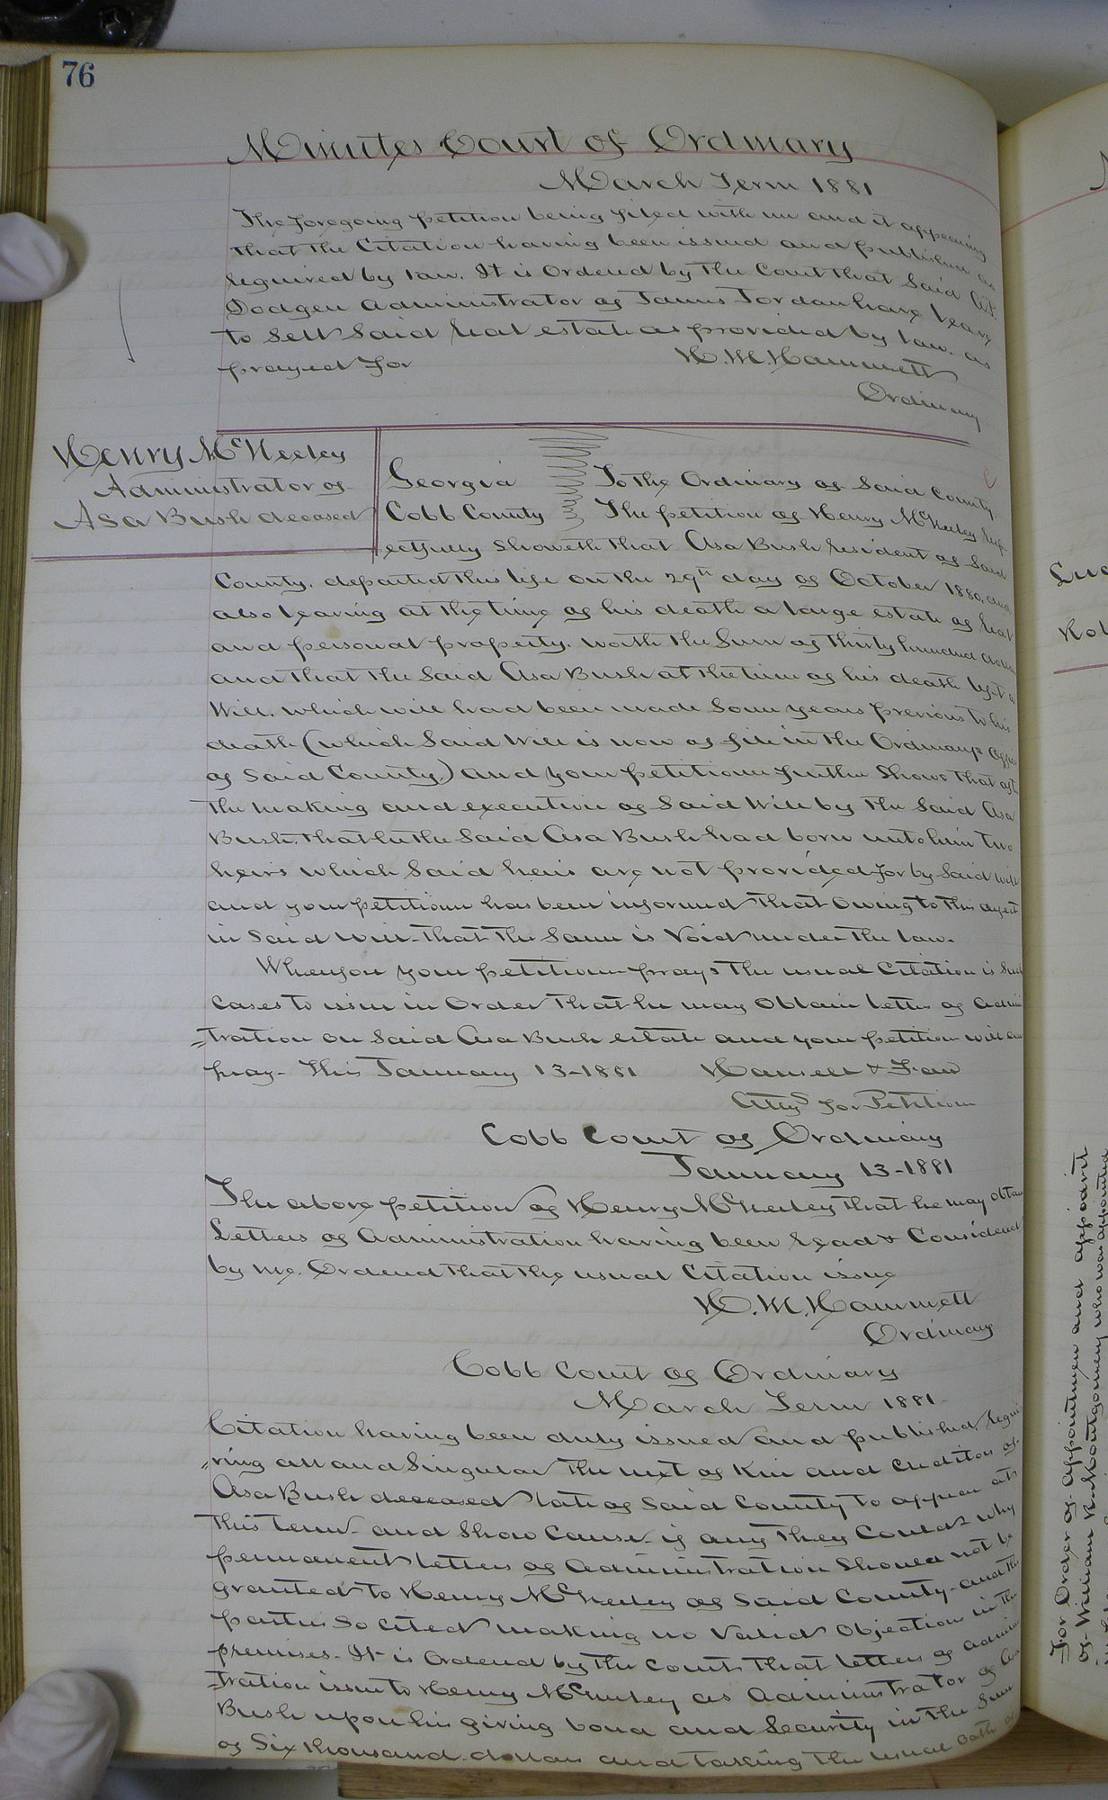 76
Minutes Court of Ordinary
March Term 1881
The foregoing petition being filed with me and it appearing
that the Citation having been issued and published as
required by law. It is Ordered by the Court that Said
Dodgen Administrator of James Jordan have leave
to Sell Said Real estate as provided by law. as
prayed for H. M. Hammett
Ordinary
Henry McNeeley
Administrator of
Asa Bush deceased
Georgia To the Ordinary of Said County.
Cobb County The petition of Henry McNeeley Resp-
ectfully Showeth that Asa Bush Resident of Said
County. departed this life on the 29th day of October 1880.
also leaving at the time of his death a large estate of Real
and personal property. worth the Sum of thirty hundred
and that the Said Asa Bush at the time of his death left a
Will. which will had been made Some years previous to his
death (which Said Will is now of file in the Ordinarys office
of Said County.) and your petitioner further Shows that after
the making and execution of Said Will by the Said Asa
Bush. that he the Said Asa Bush had born unto him two
heirs which Said heirs are not provided for by Said will
and your petitioner has been informed that Owing to this defect
in Said will that the Same is Void under the law.
Wherefore your petitioner prays the usual Citation is Such
cases to issue in Order that he may Obtain letters of Admi
=tration on Said Asa Bush estate and your petition will
pray. This January 13-1881 Hansell & Faw
Attys for Petition
Cobb Court of Ordinary
January 13-1881
The above petition of Henry McNeeley that he may Obtain
Letters of Administration having been Read & Considered
by me. Ordered that the usual Citation issue
H. M. Hammett
Ordinary
Cobb Court of Ordinary
March Term 1881
Citation having been duly issued and published, Requi
"ring all and Singular the next of Kin and Creditors of
Asa Bush deceased late of Said County to appear at
this term and Show Cause if any they Could why
permanent letters of Administration Should not be
granted to Henry McNeeley of Said County and the
parties So Cited making no Valid Objection in the
premises. It is Ordered by the Court that letters of Admini
=tration issue to Henry McNeeley as Administrator of Asa
Bush upon his giving bond and Security in the Sum
of Six thousand dollars and taking the usual Oath
For Order of Appointment and appoint
of William R. Montgomery who was appointed